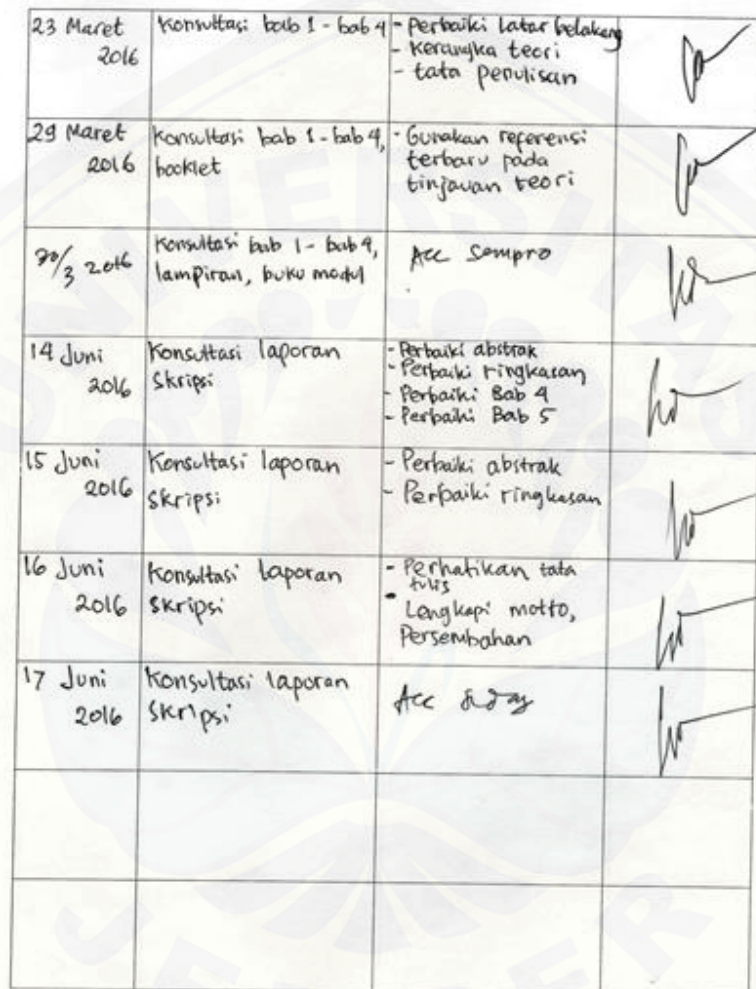 23 Maret
2016
Konsultasi bab 1 - bab 4
- Perbaiki Latar belakang
- Kerangka teori
- tata penulisan
29 Maret
2016
Konsultasi bab 1 - bab 4,
booklet
- Gunakan referensi
terbaru pada
tinjauan teori
30/3 2016
Konsultasi bab 1 - bab 4,
lampiran, buku modul
Acc Sempro
14 Juni
2016
Konsultasi laporan
Skripsi
- Perbaiki abstrak
- Perbaiki ringkasan
- Perbaiki Bab 4
- Perbaiki Bab 5
15 Juni
2016
Konsultasi laporan
Skripsi
- Perbaiki abstrak
- Perbaiki ringkasan
16 Juni
2016
Konsultasi laporan
Skripsi
- Perhatikan tata
tulis
- Lengkapi motto,
Persembahan
17 Juni
2016
Konsultasi laporan
Skripsi
Acc
UNIVERSITAS
JEMBER